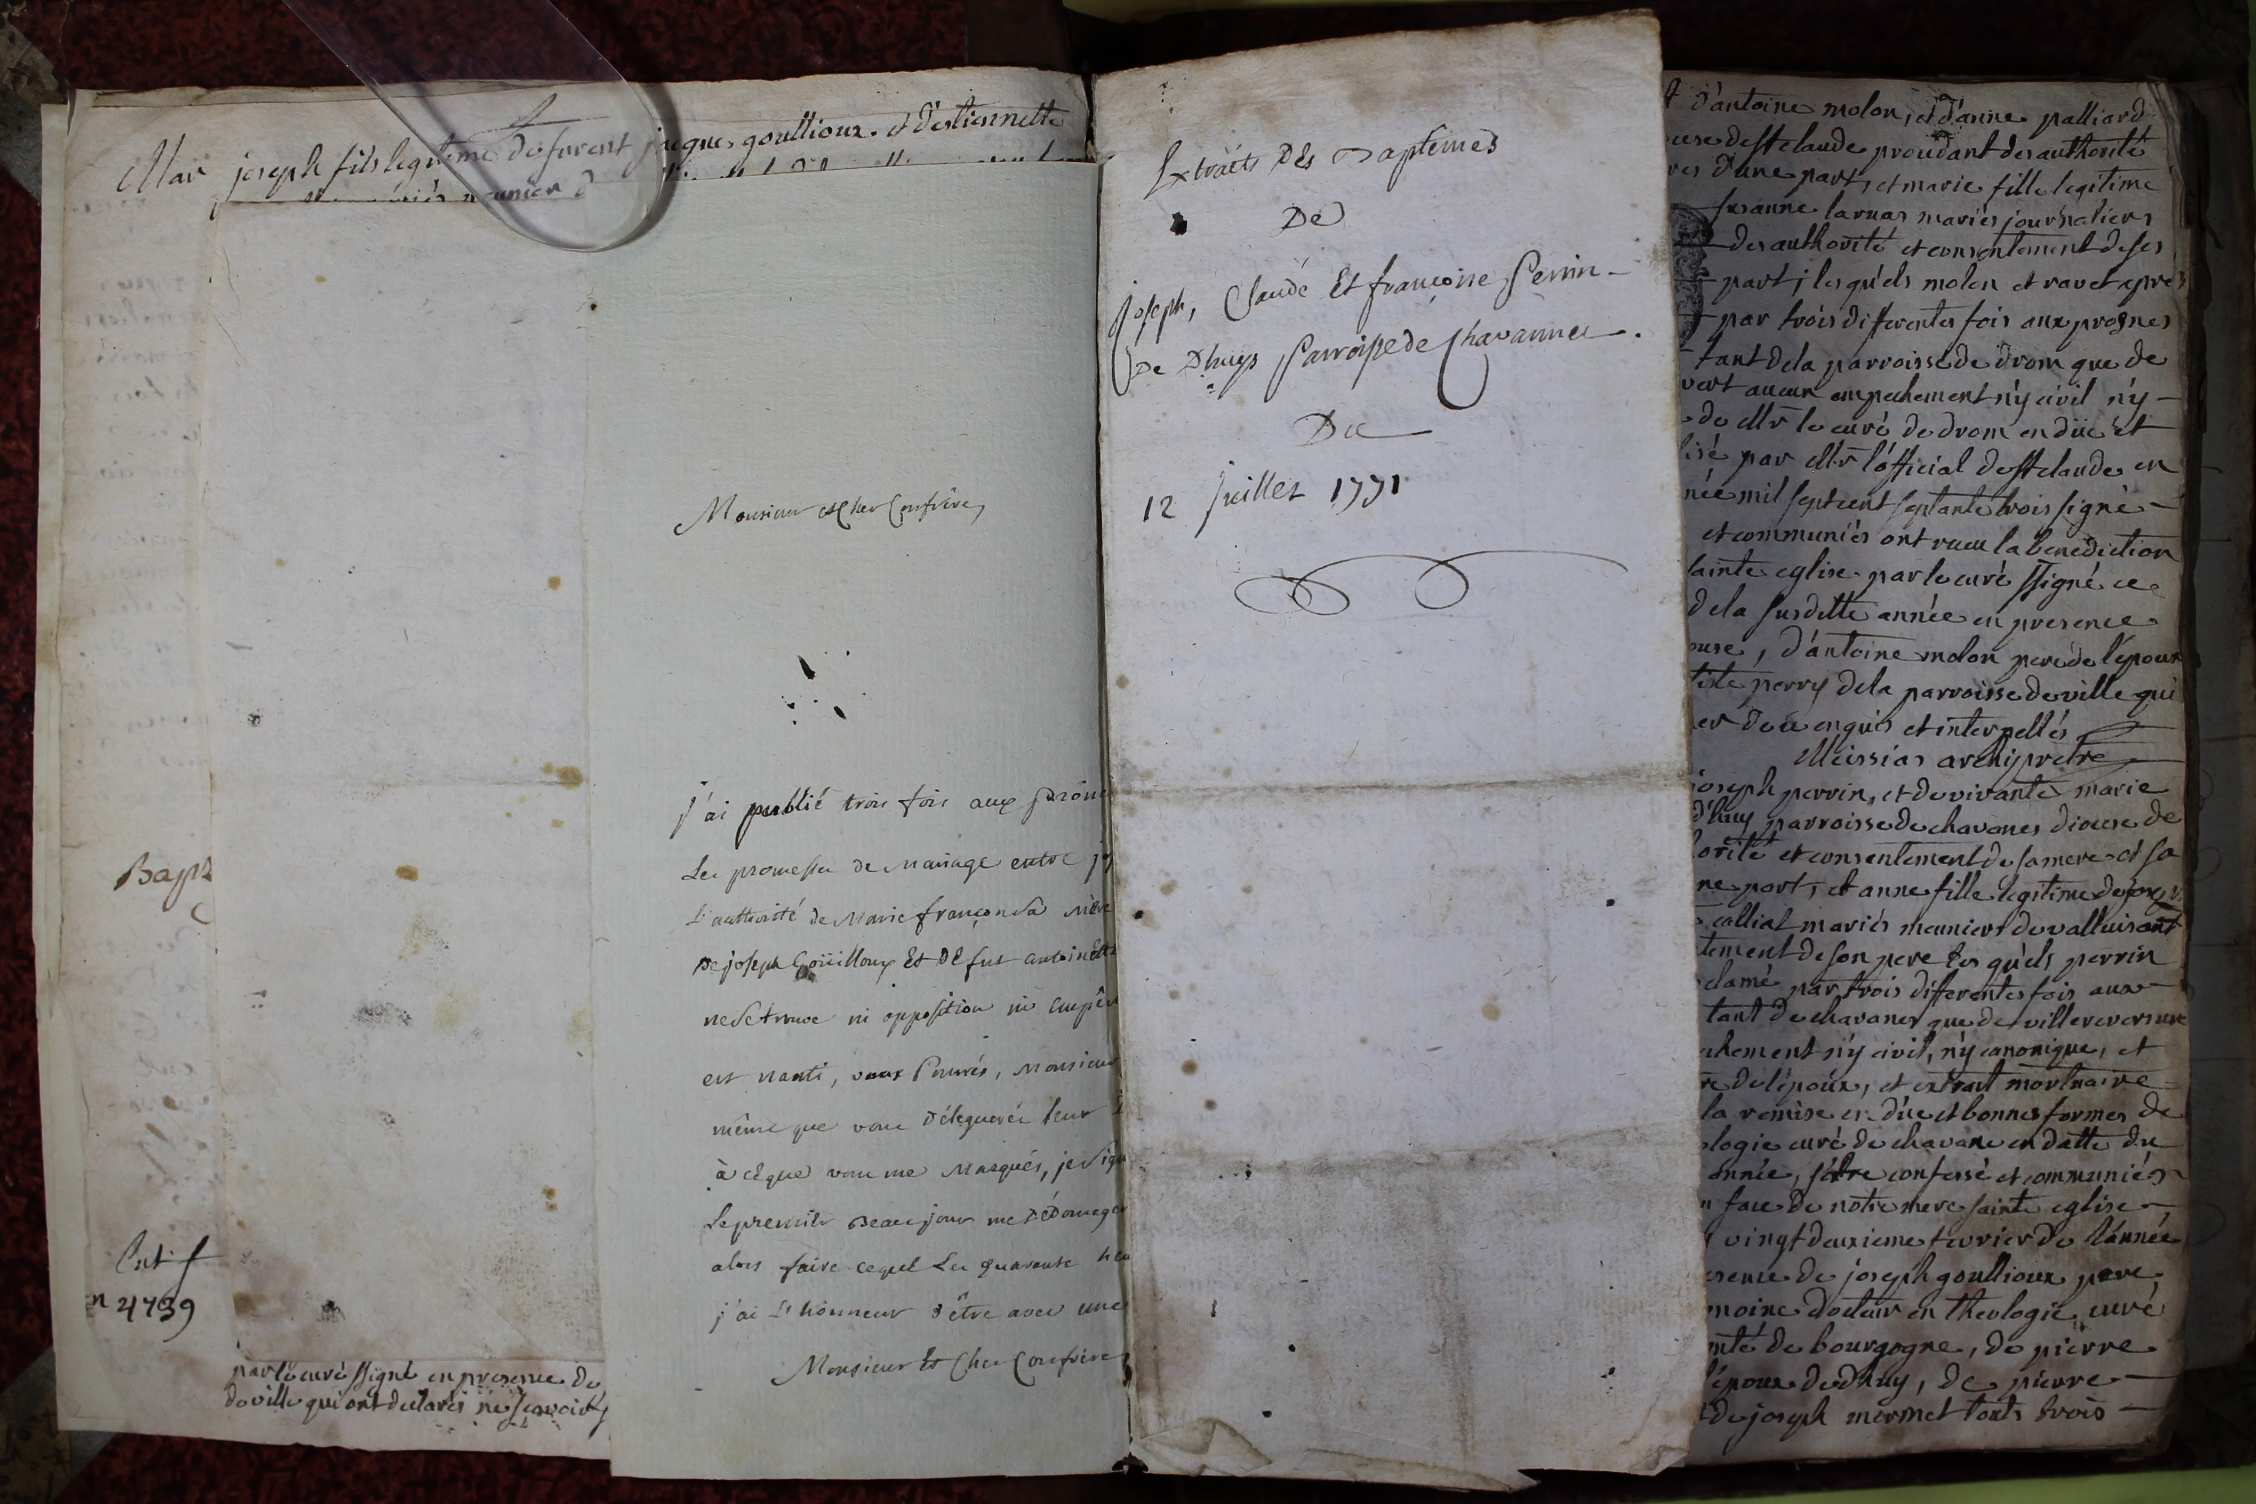 Mar
joseph fils legitime defurent jaques goullioux et d'estiennette
Bapt
n 4739
par le curé ssigné en presence de
deville qui ont declarés ne sçavoir
Monsieur et Cher Confrère,
j'ai publié trois fois aux prône
Les promesses de Mariage entre
L'authorité de Marie françon sa mère
De joseph Goüilloux Et DE fut antoinette
ne se trouve ni opposition ni empê
est nanti, vous Pouvés, Monsieur
même que vous Déleguerés leur
à ce que vous me Marqués, je
Le premier Beau jour me DéDomager
alors faire ce que Les quarante heu
j'ai L'honneur d'être avec une
Monsieur Et Cher Confrère
Extraits Des Baptemes
De
Joseph, Claude Et françoise Perrin
De Dhuys Parroisse de Chavannes.
Du
12 Juillet 1771
d'antoine molon, et d'anne palliard
de st claude proudant des authorité
d'une part, et marie fille legitime
susanne laruas mariés journaliers
des authorité et consentement de ses
part, lesquels molon et ravet apre
par trois differentes fois aux prosnes
tant de la parroisse de drom que de
vert aucun empechement n'y civil n'y
de Mr le curé de drom en düe et
par Mr l'official de st claude en
née mil sept cent septante trois signé
et communiés ont receu la benediction
sainte eglise par le curé ssigné ce
de la susditte année en presence
ouse, d'antoine molon pere de l'epoux
tiste perry de la parroisse deville qui
er de ce enquis et interpellés
Messias archipretre
joseph perrin, et de vivante marie
d'huy parroisse de chavanes diocese de
orité et consentement de sa mere d'sa
ne part, et anne fille legitime de
calliat mariés meuniers de valluisant
tement de son pere lesquels perrin
clamé par trois differentes fois aux
tant de chavanes que de villereversure
chement n'y civil, n'y canonique, et
re de l'époux, et extrait mortuaire
la remise en düe et bonnes formes de
ologie curé de chavane en datte du
année, s'être confessé et communiés
n face de notre mere sainte eglise
vingt deuxieme fevrier de l'année
esence de joseph goullioux pere
moine docteur en theologie, curé
mté de bourgogne, de pierre
l'époux de dhuy, de pierre
de joseph mermet touts trois